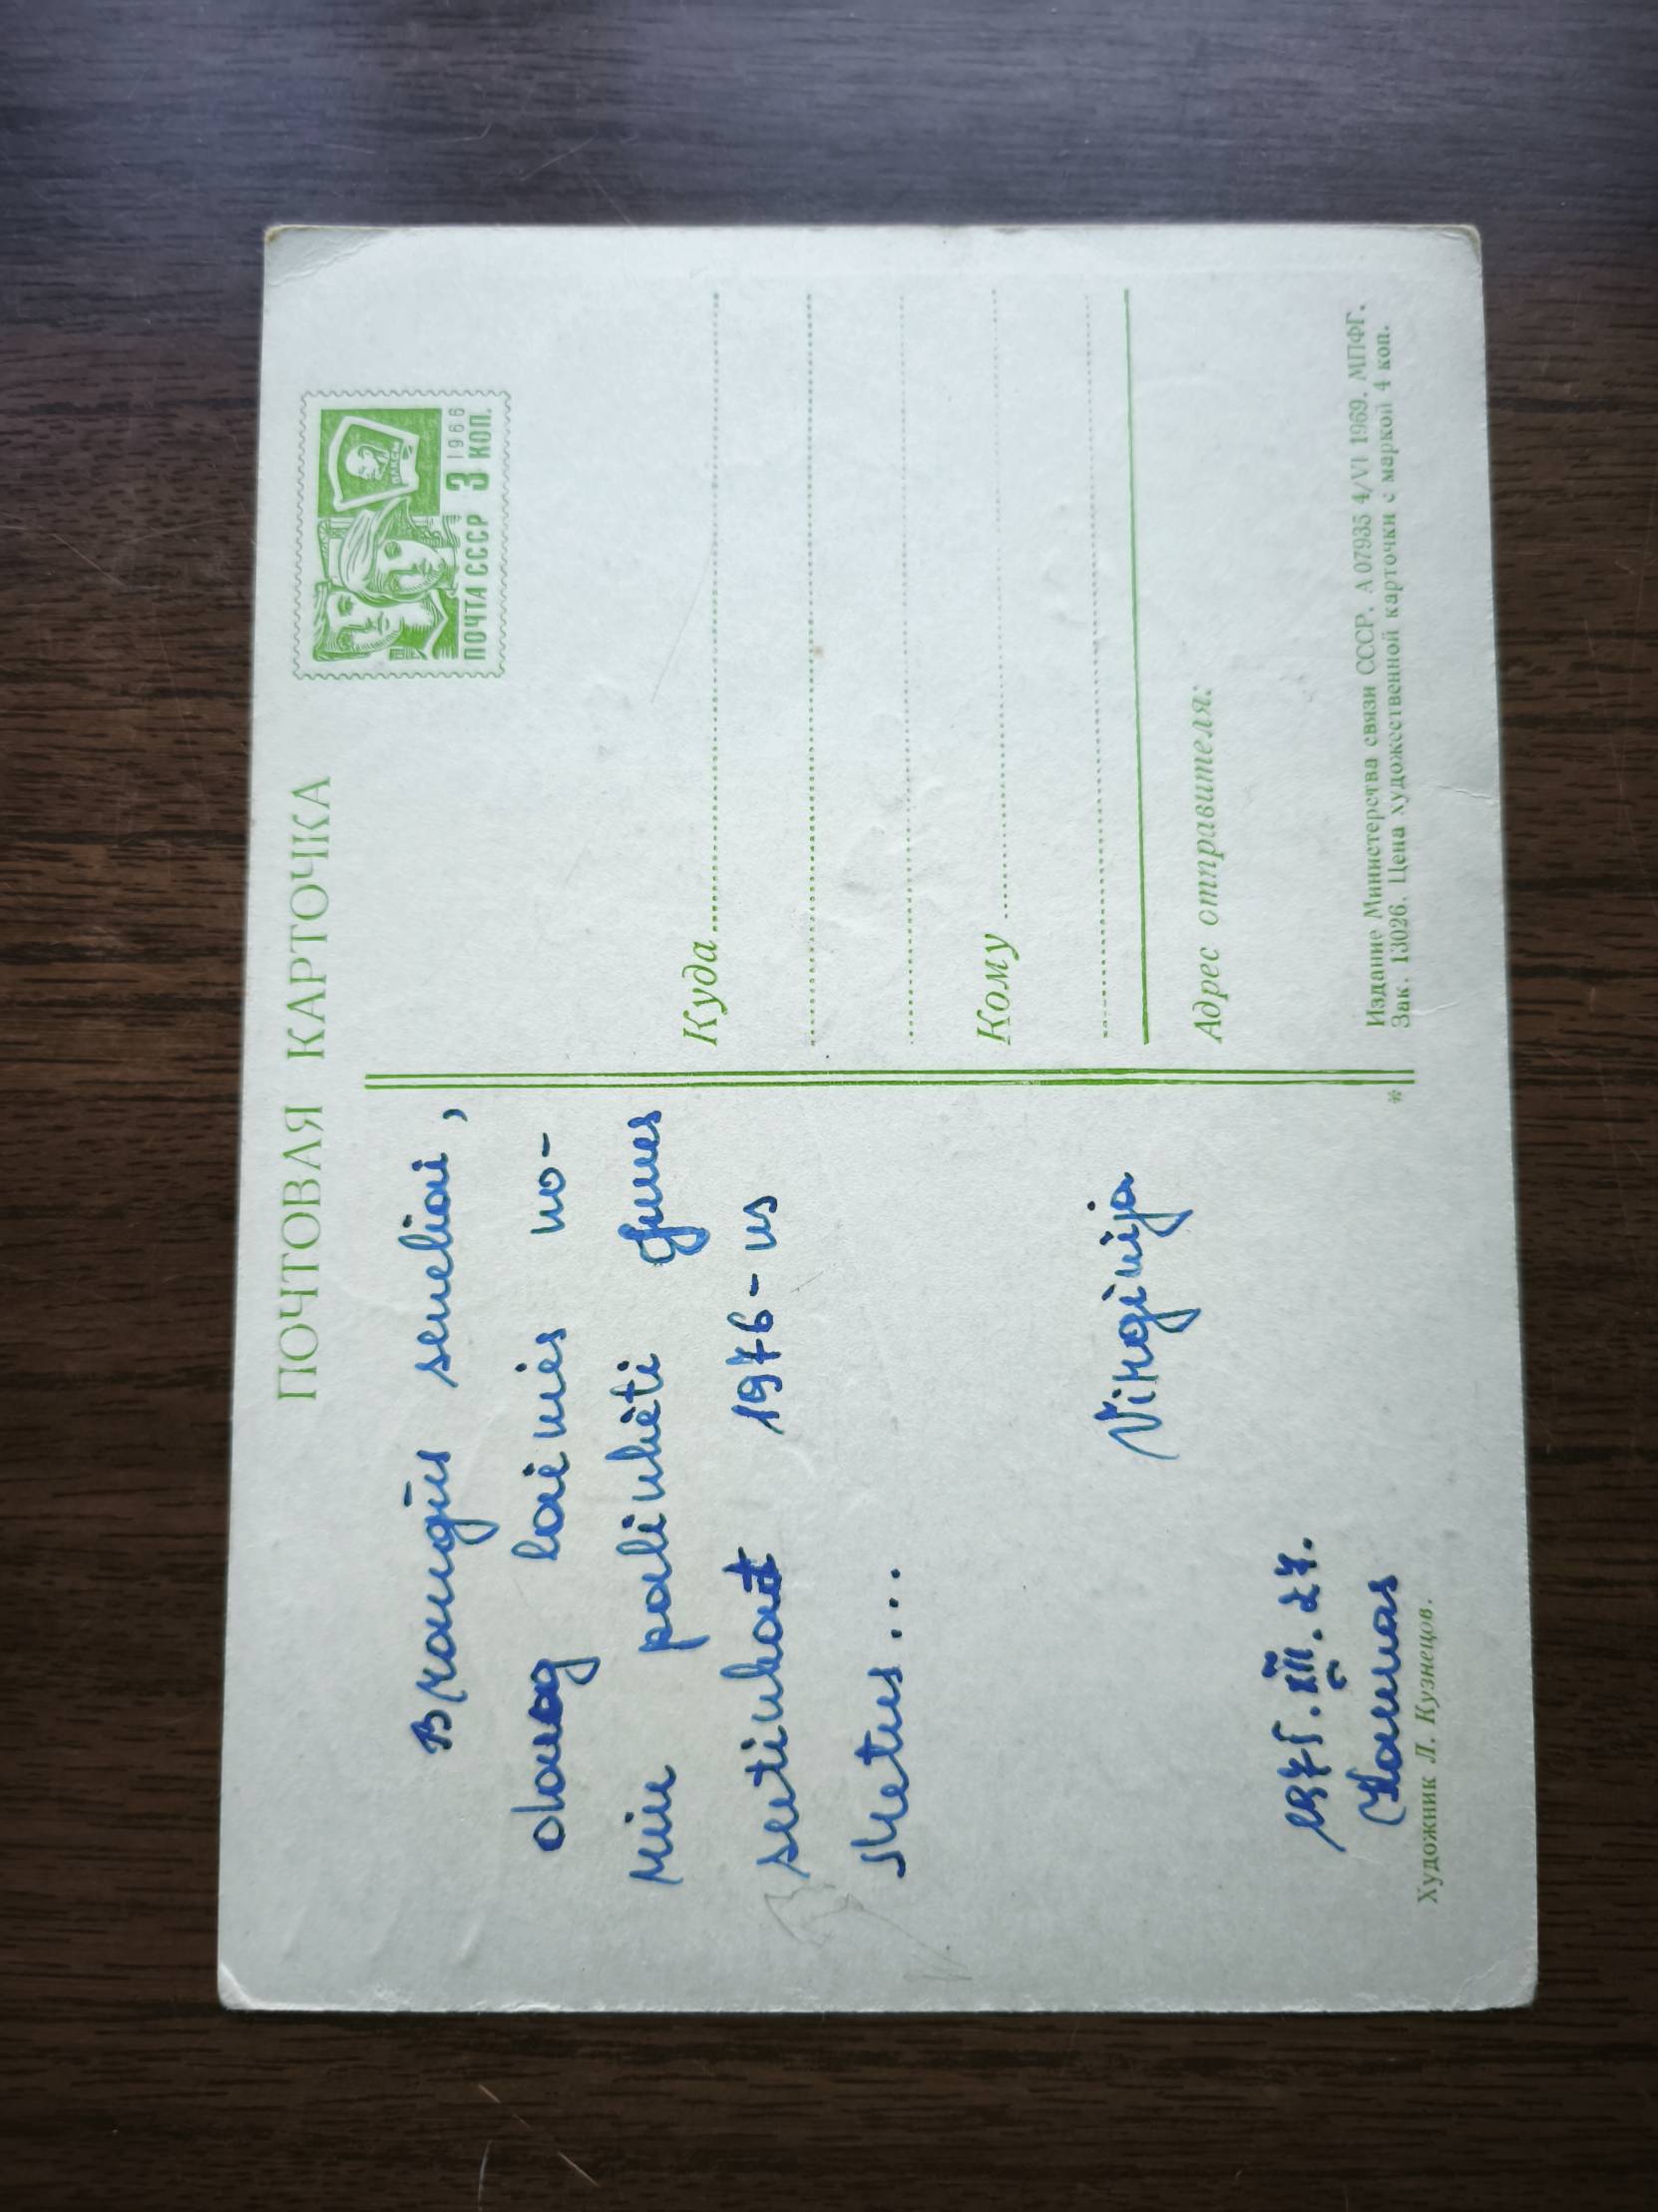 ПОЧТОВАЯ КАРТОЧКА
Brangūs seneliai,
daug laimės no-
rim palinkėti Jums
sutinkant 1976-us
Metus...
Virginija
1975.XII.27.
Kaunas
Художник Л. Кузнецов.
ВЛКСМ
1966
ПОЧТА СССР 3 КОП.
Куда
Кому
Адрес отправителя:
Издание Министерства связи СССР. А 07935 4/VI 1969. МПФГ.
Зак. 13026. Цена художественной карточки с маркой 4 коп.
*